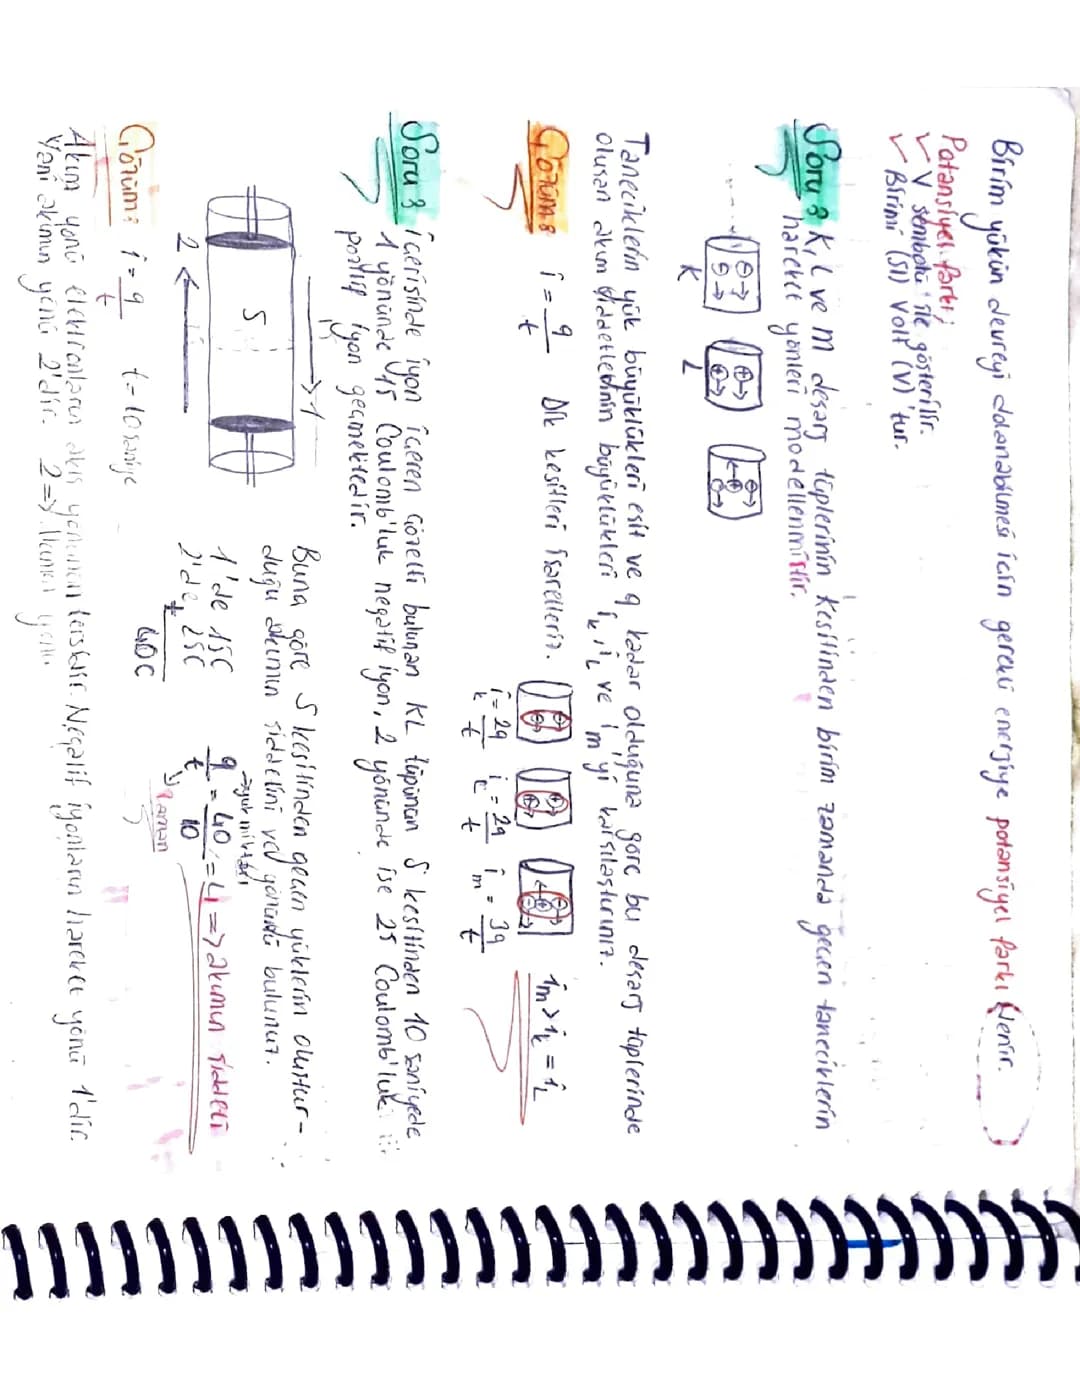 Birim yükün devreyi dolanabilmesi için gerekli enerjiye potansiyel farkı denir.
Potansiyel farkı;
✓ V sembolü ile gösterilir.
✓ Birimi (SI) Volt (V)'tur.
Soru: K, L ve M deşarj tüplerinin kesitinden birim zamanda geçen taneciklerin
hareket yönleri modellenmiştir.
K L
Taneciklerin yük büyüklükleri eşit ve q kadar olduğuna göre bu deşarj tüplerinde
oluşan akım şiddetlerinin büyüklükleri iK, iL ve im'yi karşılaştırınız.
Çözüm: i = q/t Dik kesitleri işaretlerin.
ik = 2q/t iL = 2q/t im = 3q/t
im > ik = iL
Soru: İçerisinde iyon içeren çözelti bulunan KL tüpünün S kesitinden 10 saniyede
1 yönünde 15 Coulomb'luk negatif iyon, 2 yönünde ise 25 Coulomb'luk
pozitif iyon geçmektedir.
1
S
2
Buna göre S kesitinden geçen yüklerin oluştur-
duğu akımın şiddetini ve yönünü bulunuz.
1'de 15C
2'de + 25C
40C
→ yük miktarı
q/t = 40/10 = 4 => akımın şiddeti
↳ zaman
Çözüm: i = q/t t = 10 saniye
Akım yönü elektronların akış yönünün tersidir. Negatif iyonların hareket yönü 1'dir.
Yani akımın yönü 2'dir. 2 => Akımın yönü